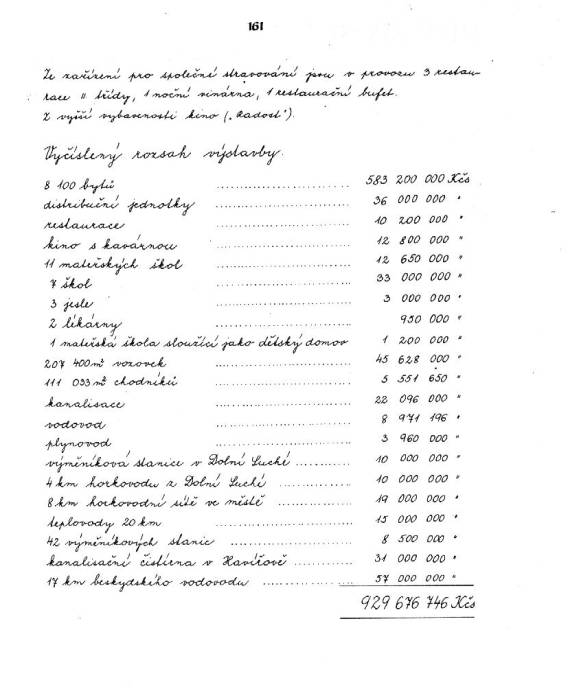 161
Ze zařízení pro společné stravování jsou v provozu 3 restau-
race II třídy, 1 noční vinárna, 1 restaurační bufet.
Z vyšší vybavenosti kino („Radost").
Vyčíslený rozsah výstavby.
8 100 bytů .......................... 583 200 000 Kčs
distribuční jednotky .......................... 36 000 000 "
restaurace .......................... 10 200 000 "
kino s kavárnou .......................... 12 800 000 "
11 mateřských škol .......................... 12 650 000 "
7 škol .......................... 33 000 000 "
3 jesle .......................... 3 000 000 "
2 lékárny .......................... 950 000 "
1 mateřská škola sloužící jako dětský domov 1 200 000 "
207 400 m² vozovek .......................... 45 628 000 "
111 033 m² chodníků .......................... 5 551 650 "
kanalisace .......................... 22 096 000 "
vodovod .......................... 8 971 196 "
plynovod .......................... 3 960 000 "
výměníková stanice v Dolní Suché ........... 10 000 000 "
4 km horkovodu z Dolní Suché .............. 10 000 000 "
8 km horkovodní sítě ve městě .............. 19 000 000 "
teplovody 20 km .......................... 15 000 000 "
42 výměníkových stanic .......................... 8 500 000 "
kanalisační čistírna v Havířově ............ 31 000 000 "
17 km beskydského vodovodu ................. 57 000 000 "
929 676 746 Kčs